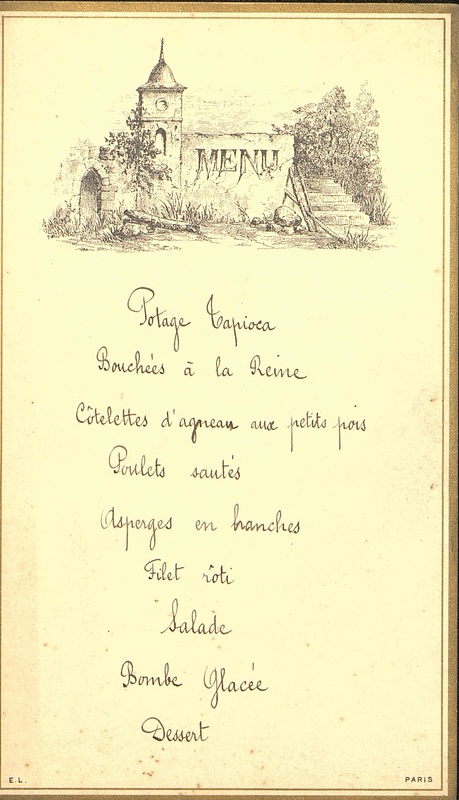 MENU
Potage Tapioca
Bouchées à la Reine
Côtelettes d'agneau aux petits pois
Poulets sautés
Asperges en branches
Filet rôti
Salade
Bombe Glacée
Dessert
E.L. PARIS